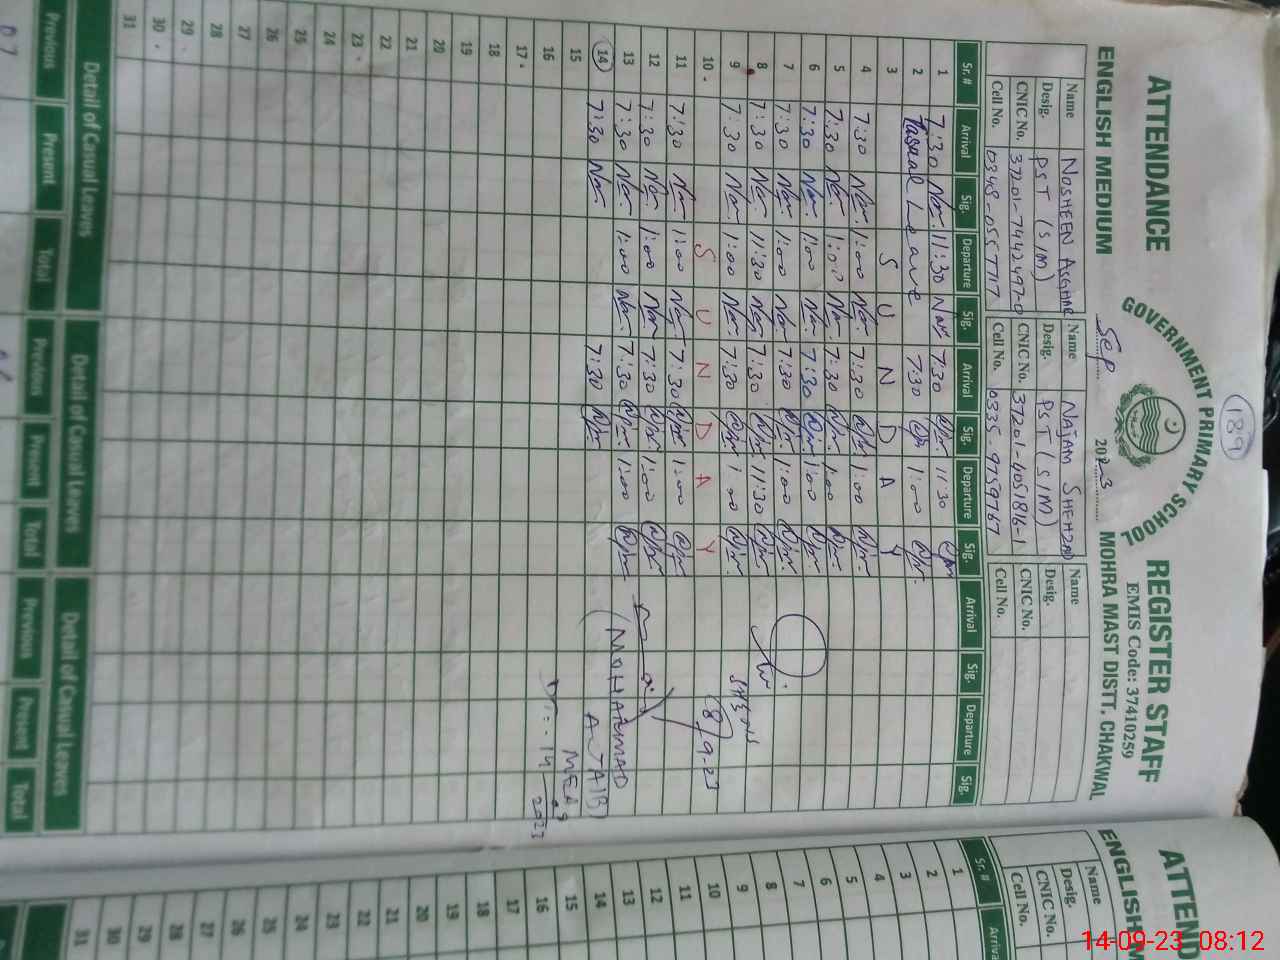 189
ATTENDANCE GOVERNMENT PRIMARY SCHOOL REGISTER STAFF
EMIS Code: 37410259
ENGLISH MEDIUM Sep 2023 MOHRA MAST DISTT. CHAKWAL
Name NOSHEEN ASGHAR Name NAJAM SHEHZAD Name
Desig. PST (SIM) Desig. PST (SIM) Desig.
CNIC No. 37201-7442497-0 CNIC No. 37201-4051816-1 CNIC No.
Cell No. 0348-0557717 Cell No. 0335-9759767 Cell No.
Sr.# Arrival Sig. Departure Sig. Arrival Sig. Departure Sig. Arrival Sig. Departure Sig.
1 7:30 11:30 7:30 11:30
2 Casual Leave 7:30 1:00
3 S U N D A Y
4 7:30 1:00 7:30 1:00
5 7:30 1:00 7:30 1:00
6 7:30 1:00 7:30 1:00
7 7:30 1:00 7:30 1:00
8 7:30 11:30 7:30 11:30
9 7:30 1:00 7:30 1:00
8/9-23
10 S U N D A Y
11 7:30 1:00 7:30 1:00
12 7:30 1:00 7:30 1:00
13 7:30 1:00 7:30 1:00
14 7:30 7:30
(MOHAMMAD
15
MEA
16
14-9-2023
17
18
19
20
21
22
23
24
25
26
27
28
29
30
31
Detail of Casual Leaves Detail of Casual Leaves Detail of Casual Leaves
Previous Present Total Previous Present Total Previous Present Total
07
ATTEND
ENGLISH M
Name
Desig.
CNIC No.
Cell No.
Sr.# Arrival
1
2
3
4
5
6
7
8
9
10
11
12
13
14
15
16
17
18
19
20
21
22
23
24
25
26
27
28
29
30
31
14-09-23 08:12